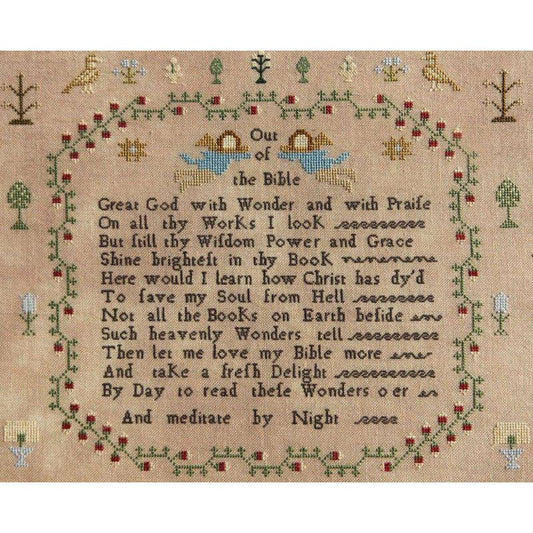 Out
of
the Bible
Great God with Wonder and with Praiſe
On all thy Works I look
But ſtill thy Wiſdom Power and Grace
Shine brighteſt in thy Book
Here would I learn how Christ has dy'd
To ſave my Soul from Hell
Not all the Books on Earth beſide
Such heavenly Wonders tell
Then let me love my Bible more
And take a freſh Delight
By Day to read theſe Wonders o er
And meditate by Night